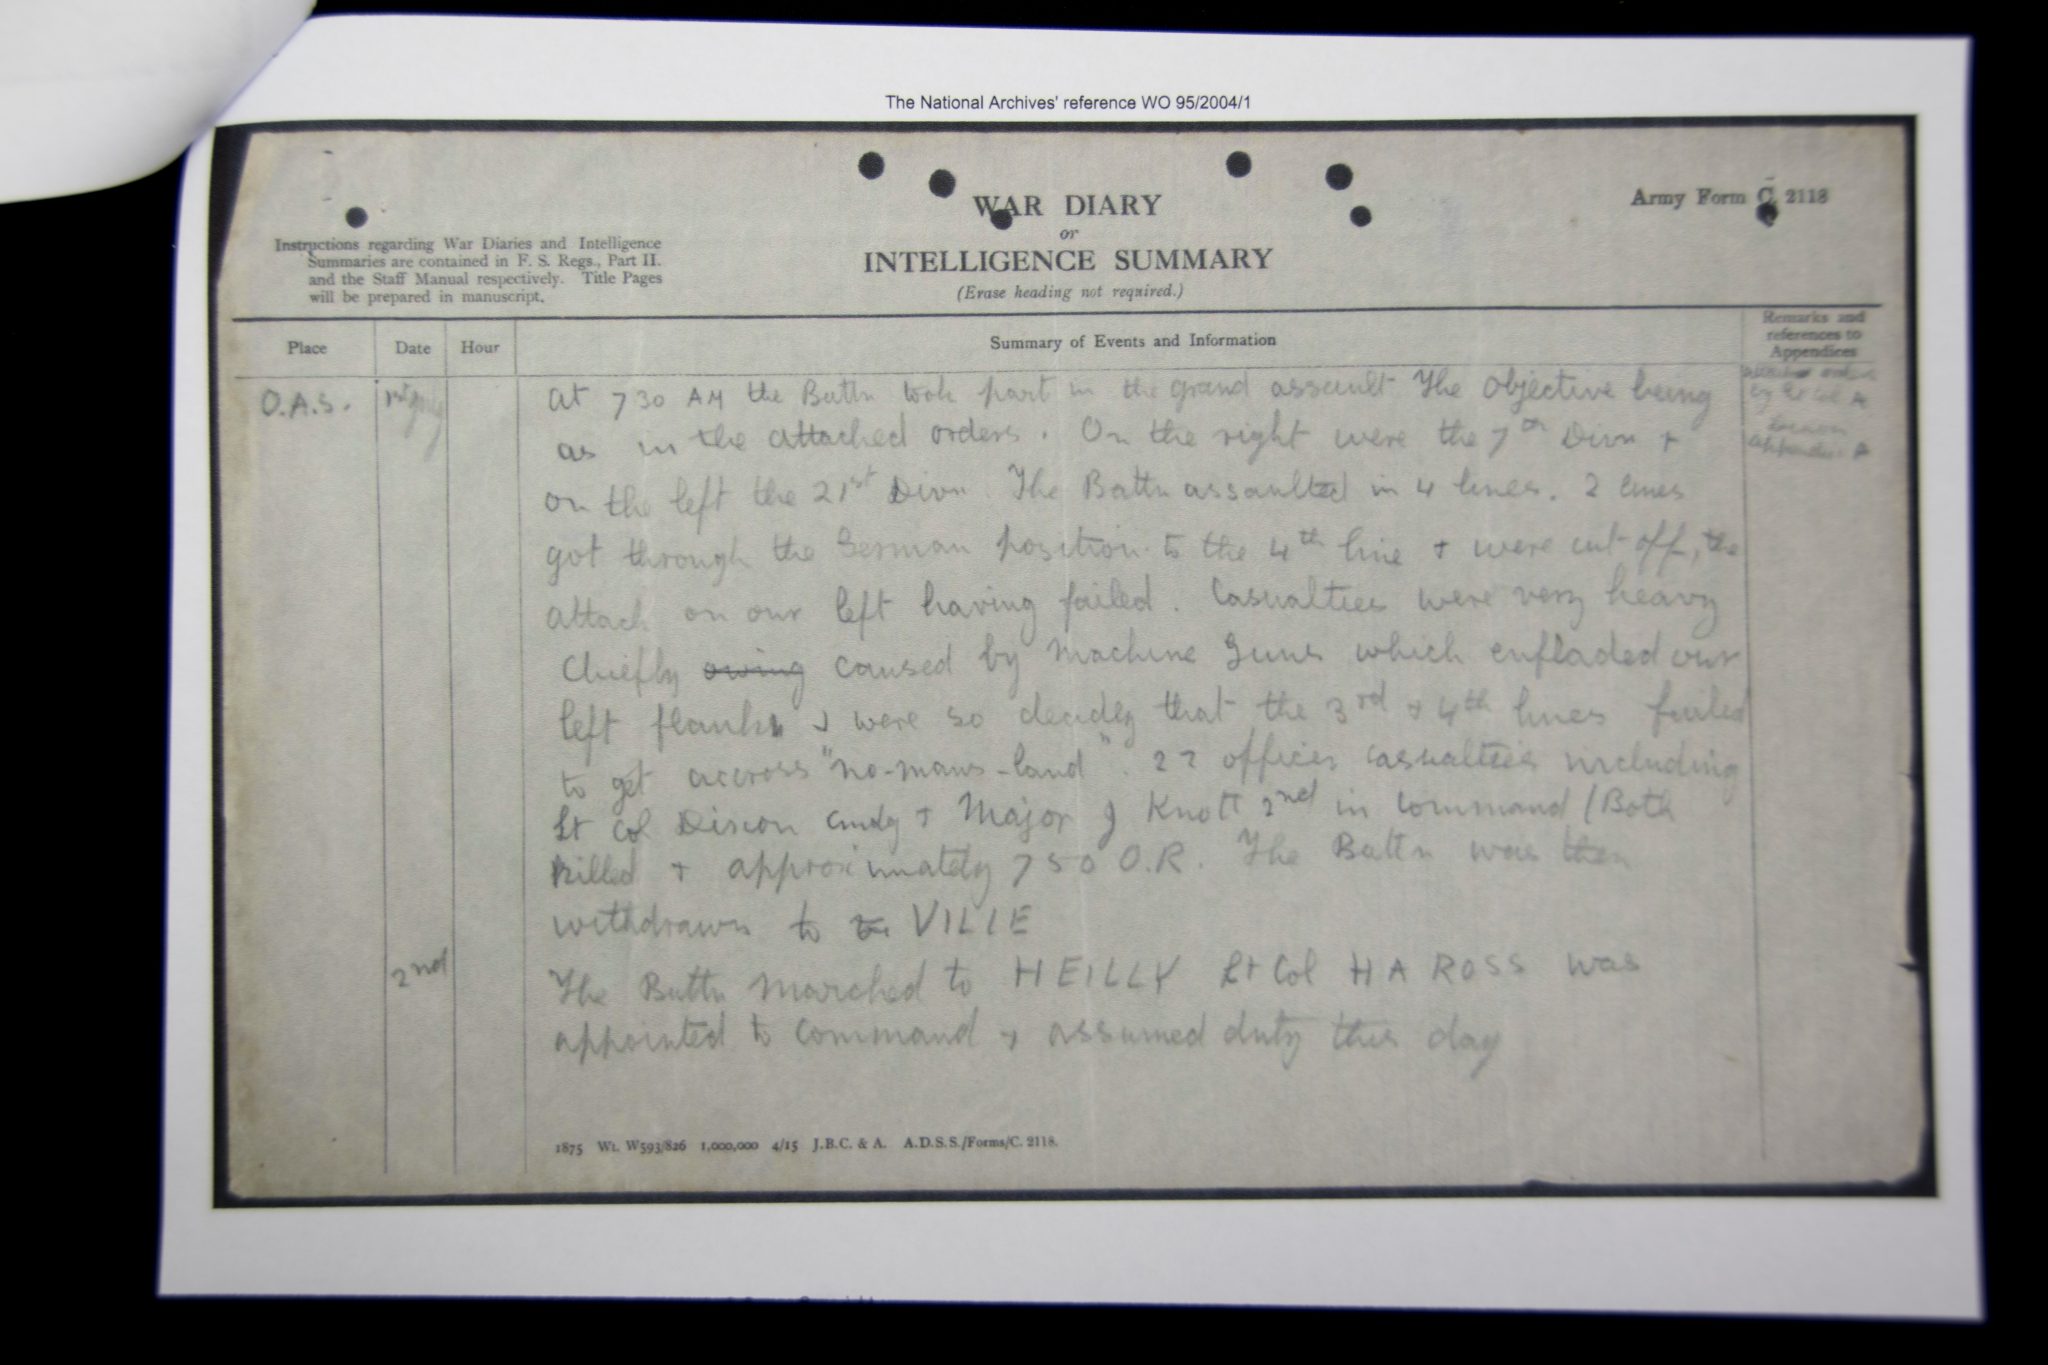 The National Archives' reference WO 95/2004/1
WAR DIARY
or
INTELLIGENCE SUMMARY
(Erase heading not required.)
Army Form C. 2118
Instructions regarding War Diaries and Intelligence
Summaries are contained in F. S. Regs., Part II.
and the Staff Manual respectively. Title Pages
will be prepared in manuscript.
Place Date Hour Summary of Events and Information
Remarks and
references to
Appendices
O.A.S. 1st July
At 7 30 AM the Battn took part in the grand assault The Objective being
as in the attached orders. On the right were the 7th Divn +
on the left the 21st Divn The Battn assaulted in 4 lines. 2 lines
got through the German position to the 4th line + were cut off, the
attack on our left having failed. Casualties were very heavy
Chiefly owing caused by Machine Guns which enfladed our
left flank + were so deadly that the 3rd + 4th lines failed
to get accross "no-mans-land". 22 officer casualties including
Lt Col Dixon Cmdg + Major J Knott 2nd in Command (Both
killed + approximately 750 O.R. The Battn was then
withdrawn to VILLE
2nd
The Battn marched to HEILLY Lt Col H A ROSS was
appointed to Command + assumed duty this day
attached orders
by Lt Col A
Dixon
Appendix A
1875 Wt. W593/826 1,000,000 4/15 J.B.C. & A. A.D.S.S./Forms/C. 2118.